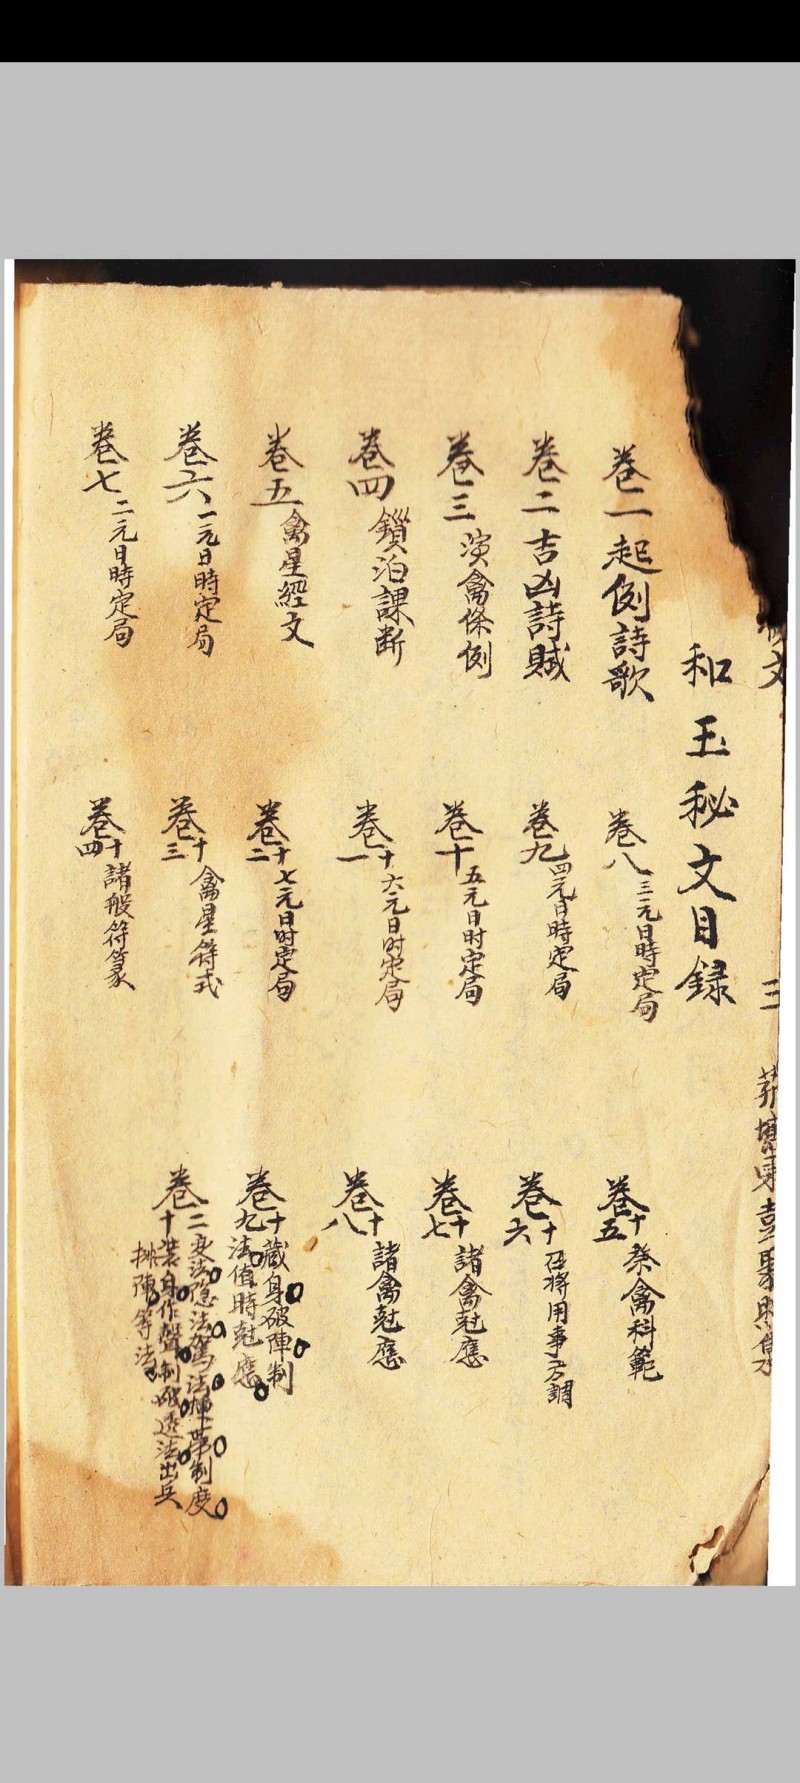 和玉秘文目録
卷一起例詩歌
卷二吉凶詩賦
卷三演禽條例
卷四鎖泊課断
卷五禽星經文
卷六一元日時定局
卷七二元日時定局
卷八三元日時定局
卷九四元日時定局
卷十五元日时定局
卷十一六元日时定局
卷十二七元日时定局
卷十三禽星符式
卷十四諸般符篆
卷十五祭禽科範
卷十六召将用事
卷十七諸禽尅應
卷十八諸禽尅應
卷十九藏身破陣制法值時尅應
卷二十変法隐法駕法制度
装身作聲制透法出兵
排陣等法
文
三